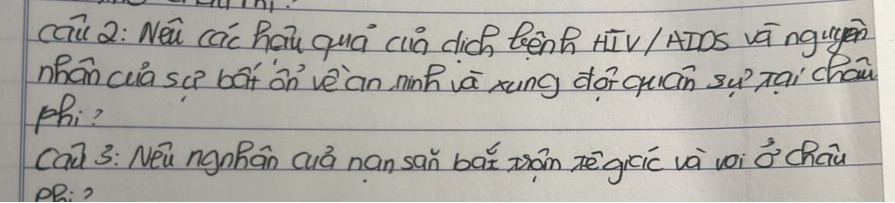 Câu 2: Nêu các hậu quả của dịch bệnh HIV/AIDS và nguyên
nhân của sự bất ổn về an ninh và xung đột quân sự tại châu
phi?
Câu 3: Nêu ngnhân của nạn săn bắt trộm tê giác và voi ở châu
phi?